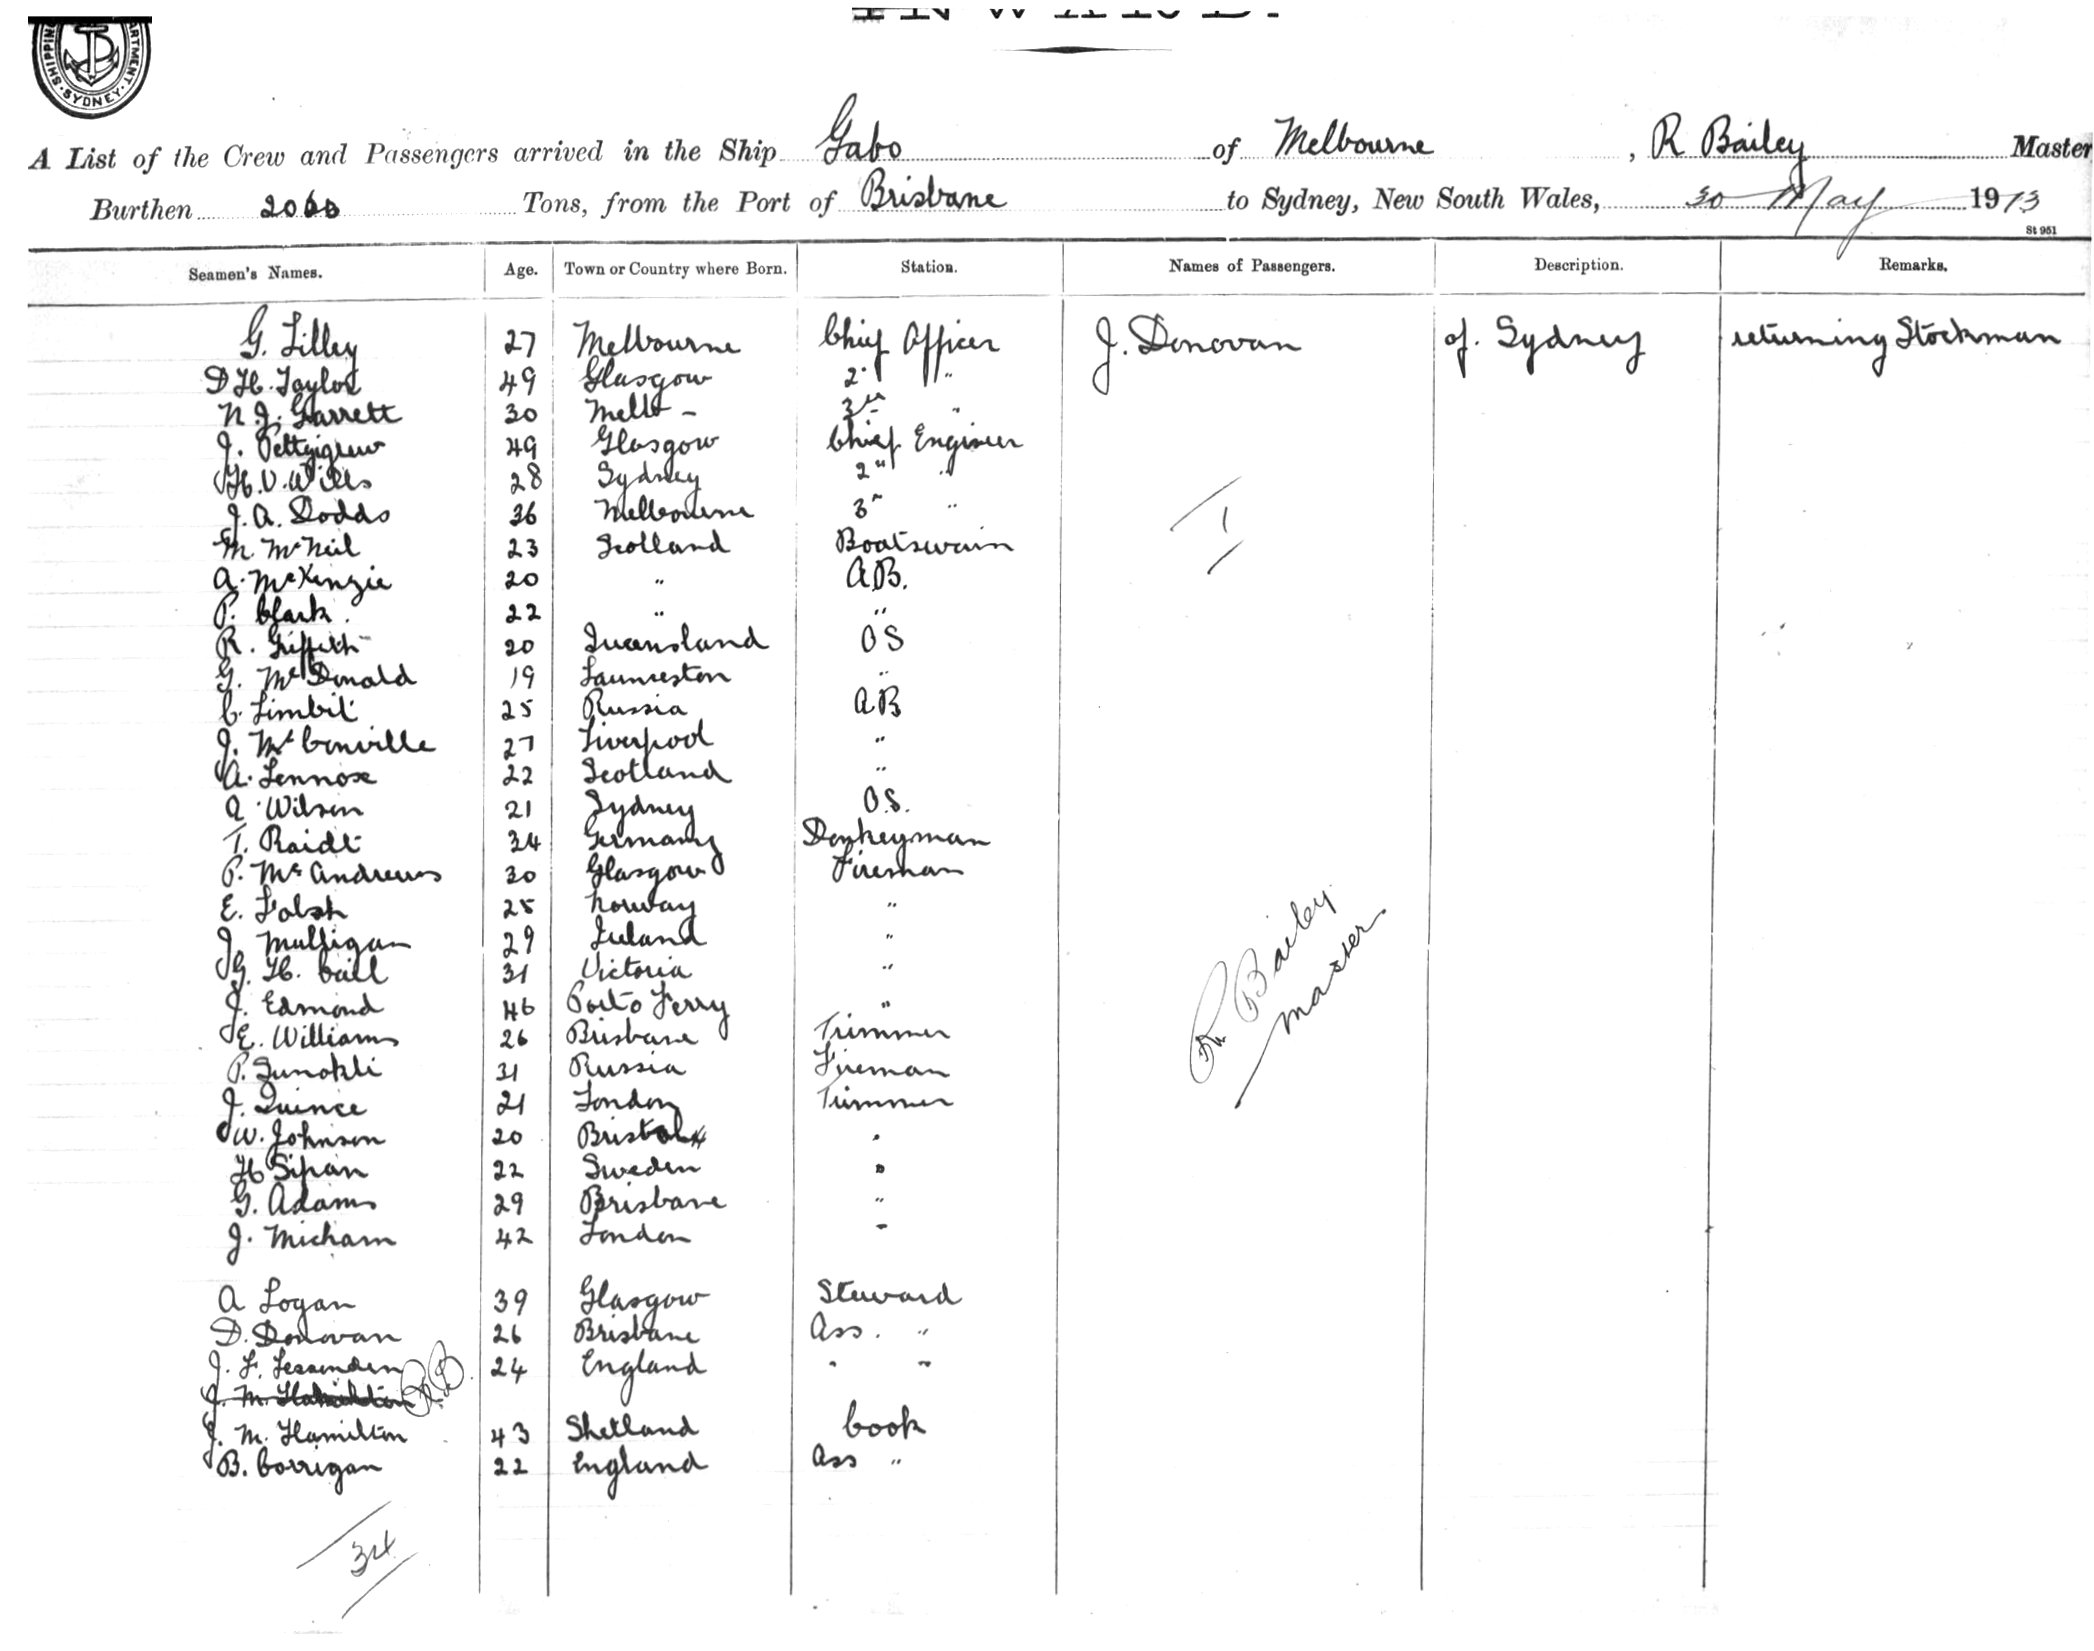 INWARD.
SHIPPING DEPARTMENT. SYDNEY.
A List of the Crew and Passengers arrived in the Ship Gabo of Melbourne, R Bailey Master
Burthen 2060 Tons, from the Port of Brisbane to Sydney, New South Wales, 30 May 1913
St 951
Seamen's Names. Age. Town or Country where Born. Station. Names of Passengers. Description. Remarks.
G. Lilley 27 Melbourne Chief Officer J. Donovan of. Sydney returning Stockman
D H. Taylor 49 Glasgow 2" "
N. J. Garrett 30 Melb - 3rd "
J. Pettygrew 49 Glasgow Chief Engineer
H. V. Wills 28 Sydney 2" "
J. A. Dodds 36 Melbourne 3" "
M. McNeil 23 Scotland Boatswain
A. McKenzie 20 " A.B.
P. Clark. 22 " "
R. Griffith 20 Queensland OS
G. McDonald 19 Launceston "
C. Limbit 25 Russia AB
J. McConville 27 Liverpool "
A. Lennox 22 Scotland "
A. Wilson 21 Sydney O.S.
T. Raidt 34 Germany Donkeyman
P. McAndrews 30 Glasgow Fireman
E. Folsh 25 Norway "
J. Mulligan 29 Ireland "
G. H. Cail 31 Victoria "
J. Edmond 46 Porto Ferry "
E. Williams 26 Brisbane Trimmer
P. 31 Russia Fireman
J. Quince 21 London Trimmer
W. Johnson 20 Bristol "
H Sipan 22 Sweden "
G. Adams 29 Brisbane "
J. Micham 42 London "
A Logan 39 Glasgow Steward
D. Donovan 26 Brisbane Ass. "
J. F. Fessenden 24 England " "
J. M. Hamilton R.B
J. M. Hamilton 43 Shetland Cook
B. Corrigan 22 England Ass "
34
1
R. Bailey
Master